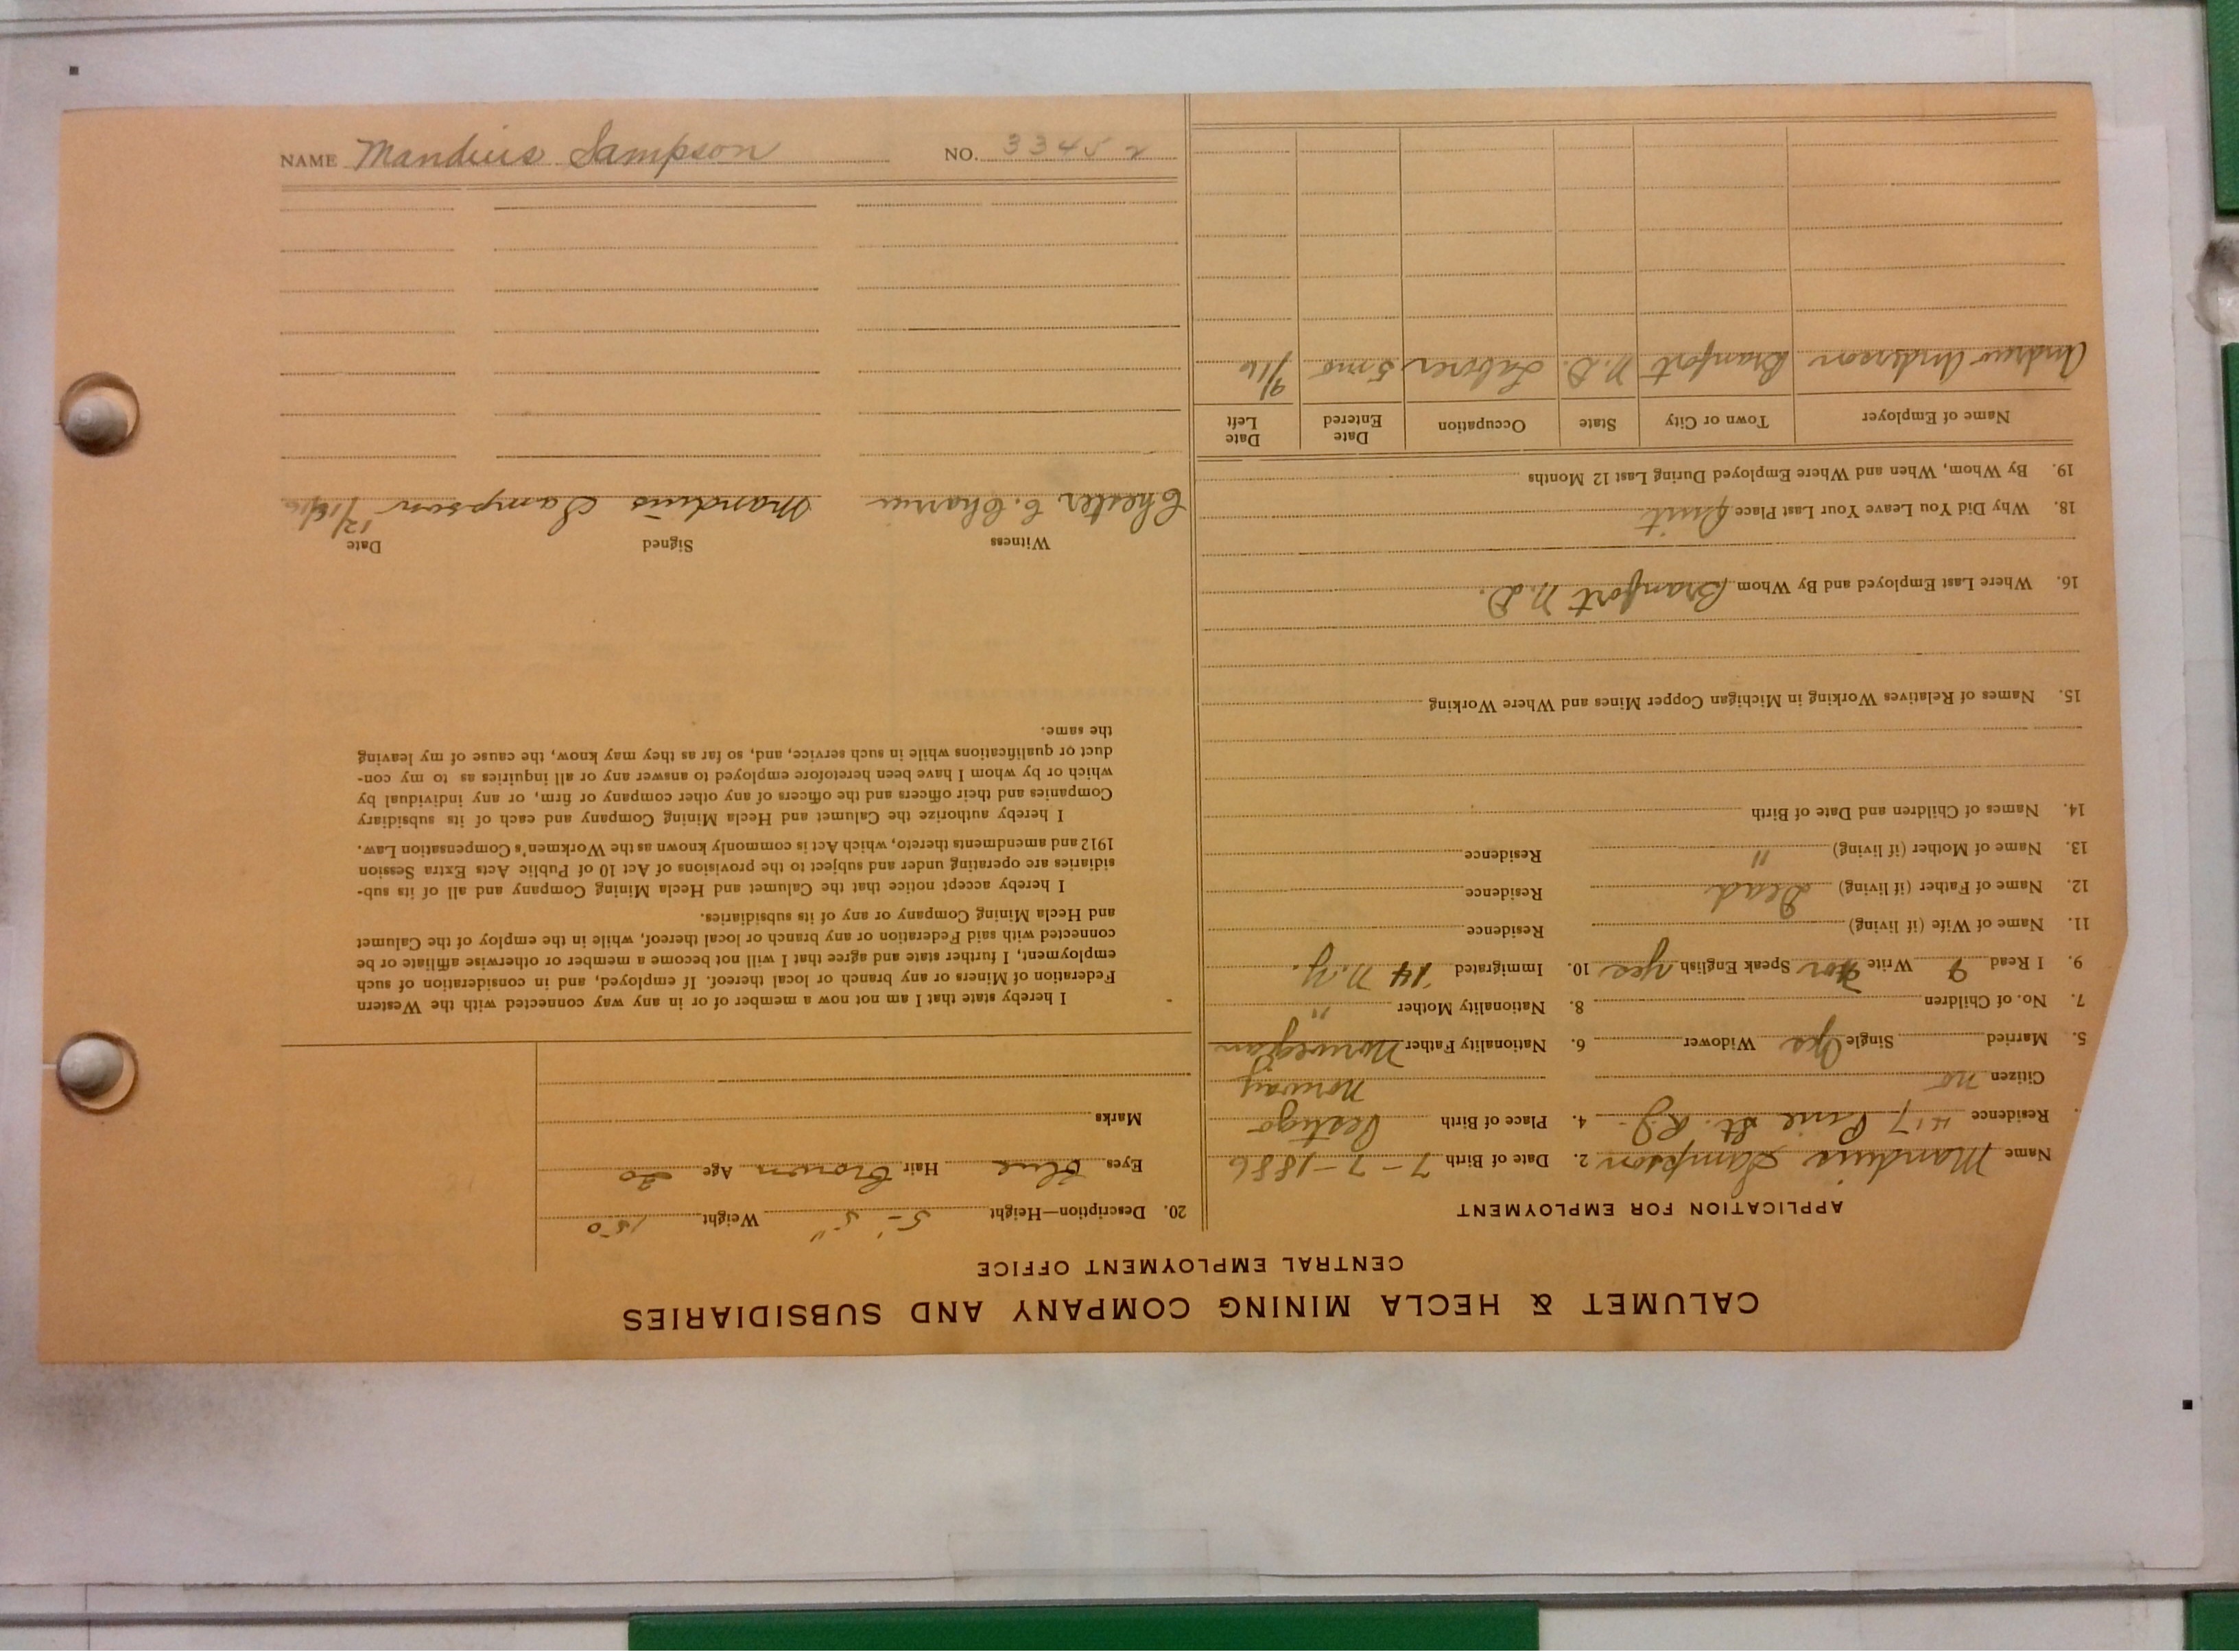 CALUMET & HECLA MINING COMPANY AND SUBSIDIARIES
CENTRAL EMPLOYMENT OFFICE
APPLICATION FOR EMPLOYMENT
Name Mandius Sampson 2. Date of Birth 7-7-1886
Residence 417 Pine St. R.J. 4. Place of Birth
Citizen no Norway
5. Married Single Yes Widower 6. Nationality Father Norwegian
7. No. of Children 8. Nationality Mother "
9. I Read Write Nor Speak English yes 10. Immigrated '14 N.Y.
11. Name of Wife (if living) Residence
12. Name of Father (if living) Dead Residence
13. Name of Mother (if living) " Residence
14. Names of Children and Date of Birth
15. Names of Relatives Working in Michigan Copper Mines and Where Working
16. Where Last Employed and By Whom Branfort N.D.
18. Why Did You Leave Your Last Place Quit
19. By Whom, When and Where Employed During Last 12 Months
Name of Employer Town or City State Occupation Date Entered Date Left
Andrew Anderson Branfort N.D. Laborer 5 mo 9/16
20. Description—Height 5'-5" Weight 150
Eyes Blue Hair Brown Age 30
Marks
I hereby state that I am not now a member of or in any way connected with the Western
Federation of Miners or any branch or local thereof. If employed, and in consideration of such
employment, I further state and agree that I will not become a member or otherwise affiliate or be
connected with said Federation or any branch or local thereof, while in the employ of the Calumet
and Hecla Mining Company or any of its subsidiaries.
I hereby accept notice that the Calumet and Hecla Mining Company and all of its sub-
sidiaries are operating under and subject to the provisions of Act 10 of Public Acts Extra Session
1912 and amendments thereto, which Act is commonly known as the Workmen's Compensation Law.
I hereby authorize the Calumet and Hecla Mining Company and each of its subsidiary
Companies and their officers and the officers of any other company or firm, or any individual by
which or by whom I have been heretofore employed to answer any or all inquiries as to my con-
duct or qualifications while in such service, and, so far as they may know, the cause of my leaving
the same.
Witness Signed Date
Chester E. Mandius Sampson 12/16/16
NAME Mandius Sampson NO. 33452